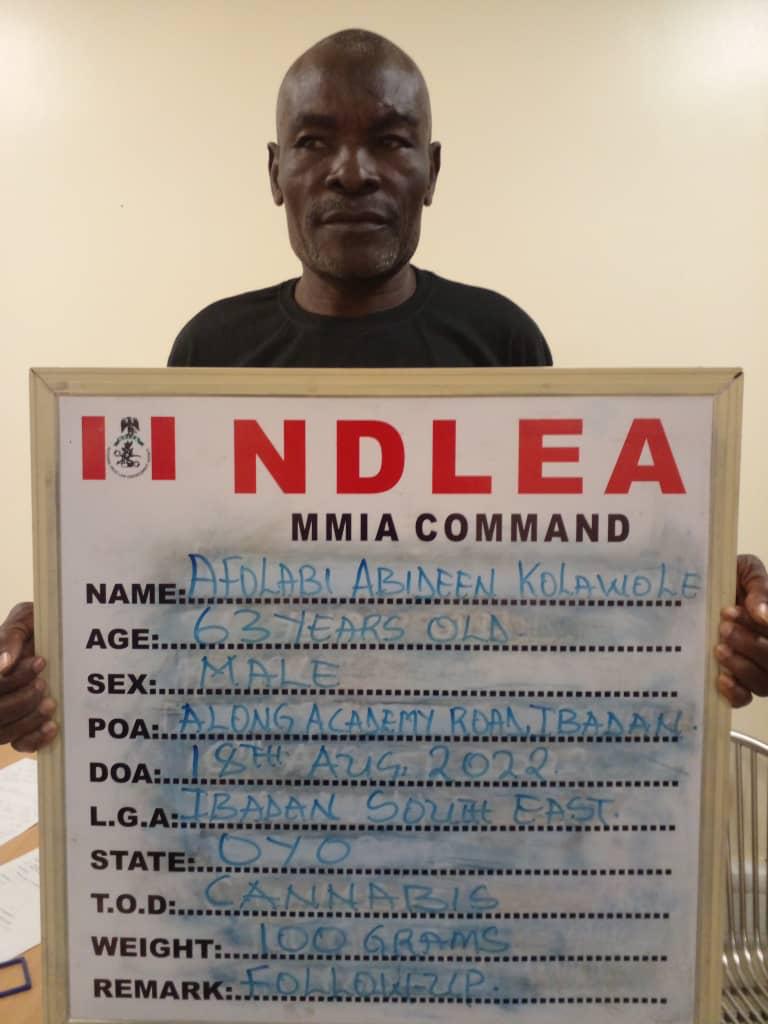 NDLEA
MMIA COMMAND
NAME: AFOLABI ABIDEEN KOLAWOLE
AGE: 63 YEARS OLD.
SEX: MALE
POA: ALONG ACADEMY ROAD, IBADAN.
DOA: 18TH AUG. 2022.
L.G.A: IBADAN SOUTH EAST.
STATE: OYO
T.O.D: CANNABIS
WEIGHT: 100 GRAMS
REMARK: FOLLOW-UP.